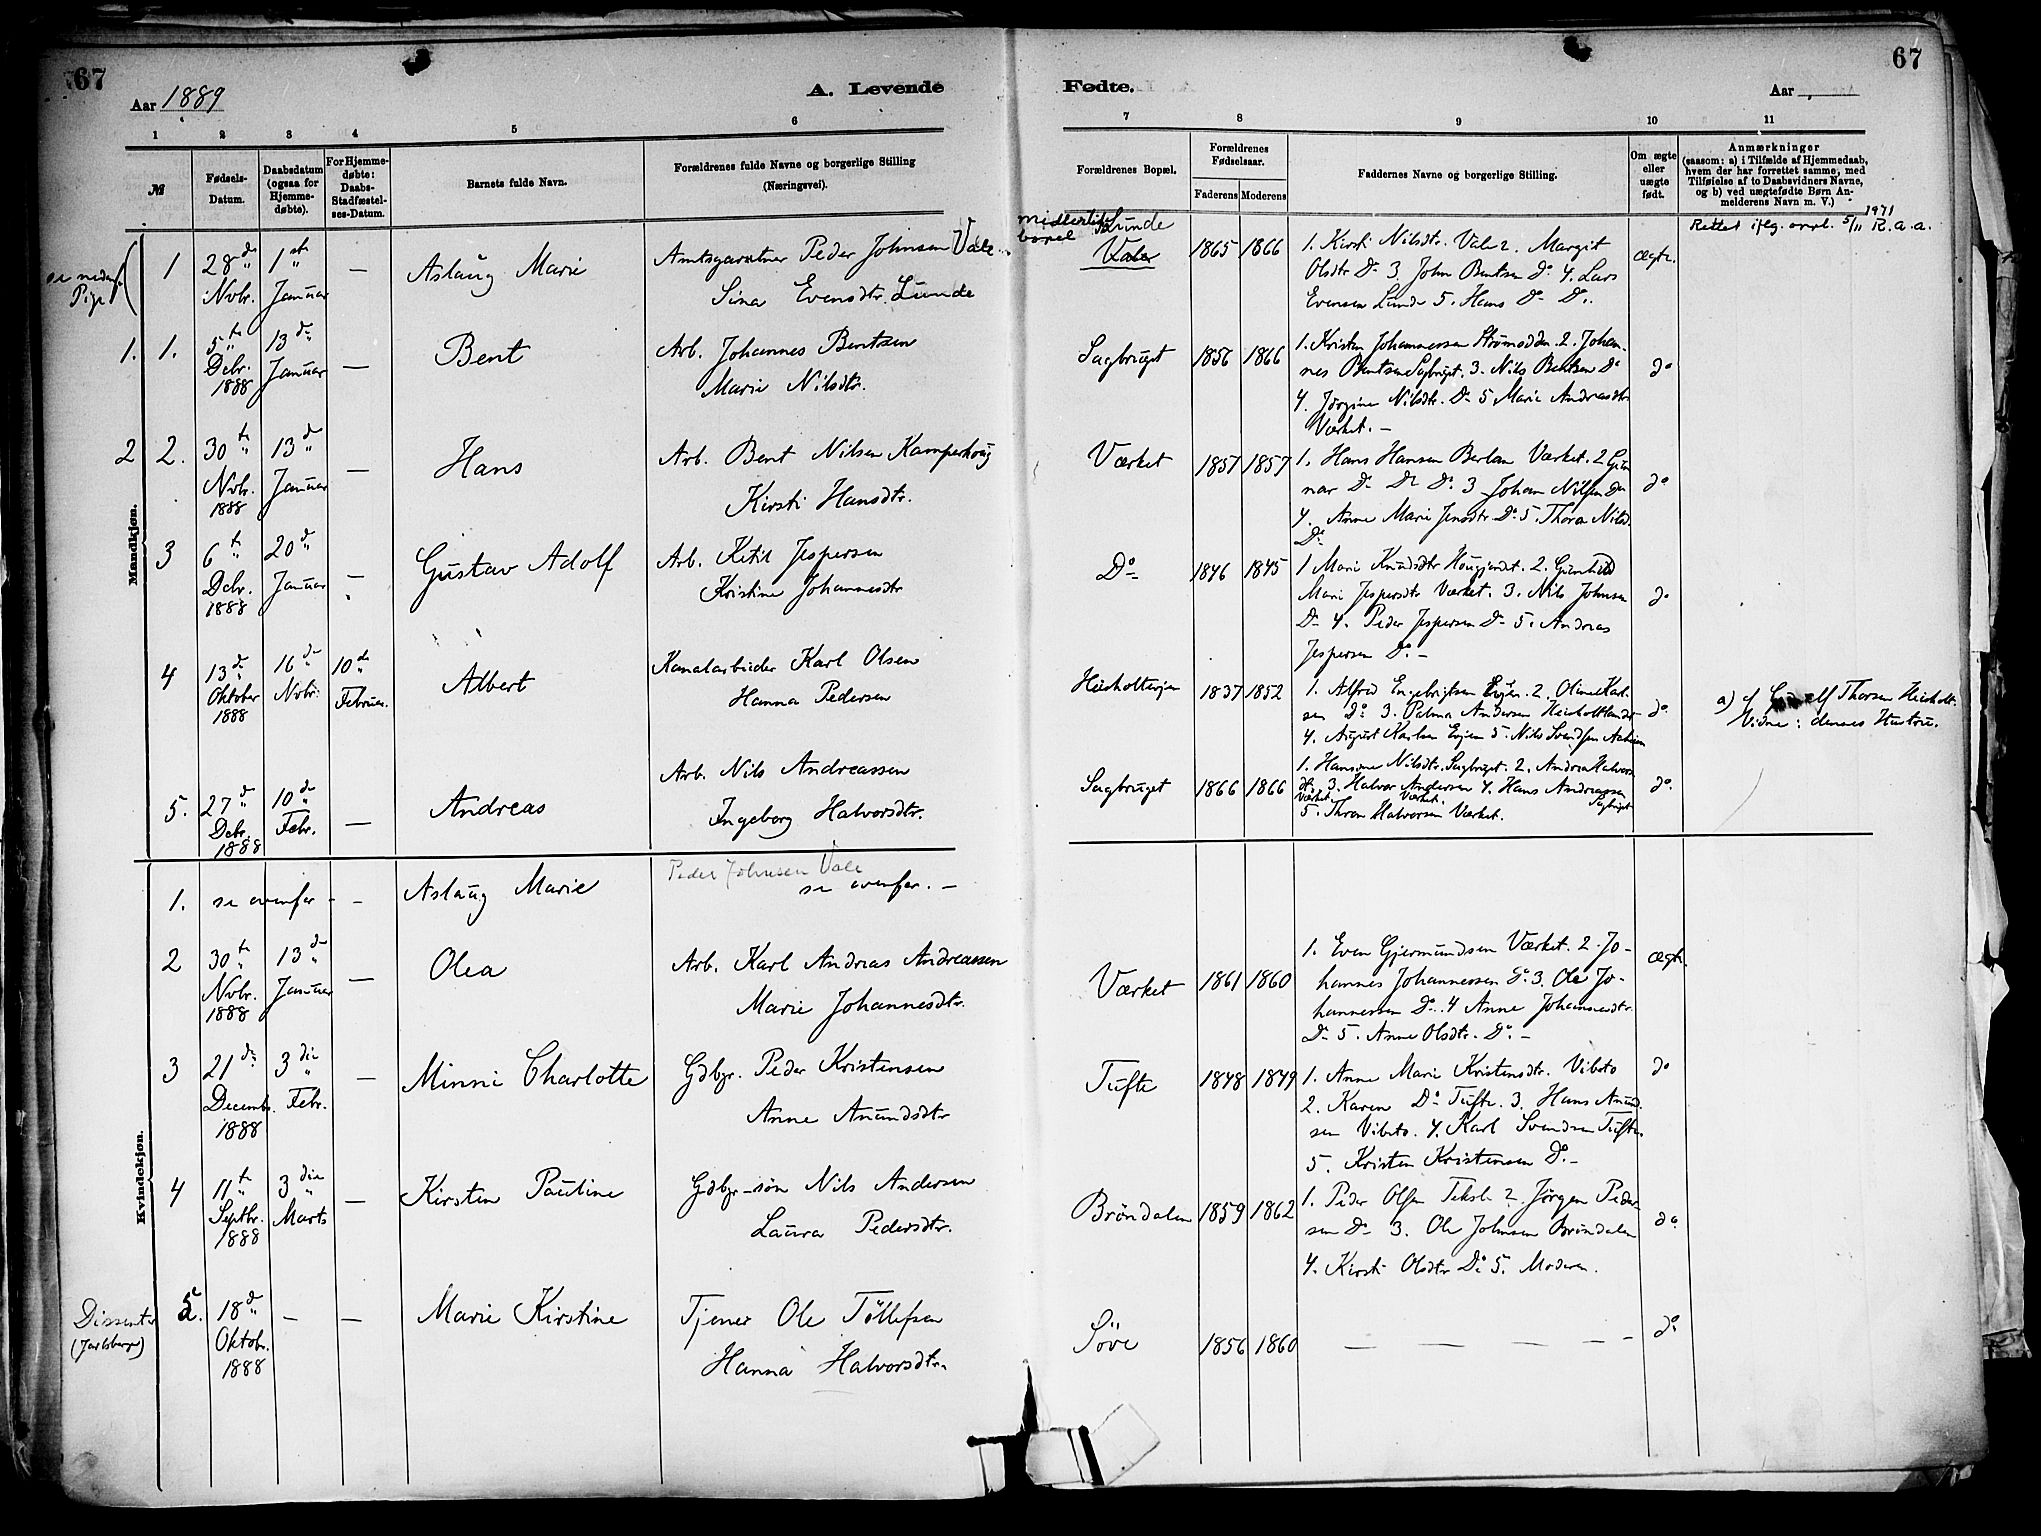 67
Aar 1889
A. Levende
Fødte.
Aar
67
1 2 3 4 5 6 7 8 9 10 11
№
Fødsels-
Datum.
Daabsdatum
(ogsaa for
Hjemme-
døbte).
For Hjemme-
døbte:
Daabs-
Stadfæstel-
ses-Datum.
Barnets fulde Navn.
Forældrenes fulde Navne og borgerlige Stilling
(Næringsvei).
Forældrenes Bopæl.
Forældrenes
Fødselsaar.
Faderens Moderens
Faddernes Navne og borgerlige Stilling.
Om ægte
eller
uægte
født.
Anmærkninger
(saasom: a) i Tilfælde af Hjemmedaab,
hvem der har forrettet samme, med
Tilføielse af to Daabsvidners Navne,
og b) ved uægtefødte Børn An-
melderens Navn m. V.)
Mandkjøn.
se nedenf.
Pige
1
28de
Novbr.
1ste
Januar
—
Aslaug Marie
Amtsgartner Peder Johnsen Vale
Sina Evensdtr. Lunde
midlertidig
bopel Lunde
Vale
1865 1866
1. Kirsti Nilsdtr. Vale 2. Margit
Olsdtr Do 3. John Bentsen Do 4. Lars
Evensen Lunde 5. Hans Do Do.
ægte.
Rettet iflg. anm. 5/11 1971 R. a. a.
1. 1.
5te
Debr.
1888
13de
Januar
—
Bent
Arb. Johannes Bentsen
Marie Nilsdtr.
Sagbruget
1856 1866
1. Kristen Johannessen Strømodden. 2. Johan-
nes Bentsen Sagbruget. 3. Nils Bentsen Do
4. Jørgine Nilsdtr. Do 5 Marie Andreasdtr
Værket. —
do
2 2.
30te
Nvbr.
1888
13de
Januar
—
Hans
Arb. Bent Nilsen Kamperhoug
Kirsti Hansdtr.
Værket
1857 1857
1. Hans Hansen Berlan Værket. 2 Gun
nar Do Do Do 3 Johan Nilsen Do
4. Anne Marie Jensdtr. Do 5. Thora Nilsd.
Do
do
3
6te
Debr.
1888
20de
Januar
—
Gustav Adolf
Arb. Ketil Jespersen
Kristine Johannesdtr
Do
1846 1845
1 Marie Knudsdtr 2. Gunhild
Marie Jespersdtr Værket. 3. Nils Johnsen
Do 4. Peder Jespersen Do 5. Andreas
Jespersen Do. —
do
4
13de
Oktober
1888
16de
Nvbr.
10de
Februar.
Albert
Kanalarbeider Karl Olsen
Hanna Pedersen
1837 1852
1. Alfred Engebrigtsen Eyen. 2. Oline Karl-
sen Do 3. Palma Andersen
4. August Karlsen Eyen 5. Nils Svendsen
do.
a) af Thorsen Heisholt.
Vidne: dennes Hustru.
5.
27de
Debr.
1888
10de
Febr.
—
Andreas
Arb. Nils Andreassen
Ingeborg Halvorsdtr.
Sagbruget
1866 1866
1. Hansine Nilsdtr. Sagbruget. 2. Andrea Halvors
dtr. 3. Halvor Andersen 4. Hans Andreassen
Værket Værket. Sagbruget
5. Thron Halvorsen Værket.
do.
Kvindekjøn.
1.
se ovenfor - -
Aslaug Marie
Peder Johnsen Vale
se ovenfor. —
2
30te
Nvbr.
1888
13de
Januar
—
Olea
Arb. Karl Andreas Andreassen
Marie Johannesdtr.
Værket
1861 1860
1. Even Gjermundsen Værket. 2. Jo-
hannes Johannessen Do 3. Ole Jo-
hannessen Do. 4 Anne Johannesdtr.
Do 5. Anne Olsdtr. Do. —
ægte.
3
21de
Decembr.
1888
3die
Febr.
—
Minni Charlotte
Gdbgr. Peder Kristensen
Anne Amundsdtr
Tufte
1848 1849
1. Anne Marie Kristensdtr. Vibeto
2. Karen Do Tufte. 3. Hans Amund-
sen Vibeto. 4. Karl Svendsen Tufte
5. Kristen Kristensen Do. —
do
4
11te
Septbr.
1888
3die
Marts
—
Kirsten Pauline
Gdbgr-søn Nils Andersen
Laura Pedersdtr.
Brøndalen
1859 1862
1. Peder Olsen Teksle 2. Jørgen Peder-
sen Do 3. Ole Johnsen Brøndalen
4. Kirsti Olsdtr Do 5. Moderen.
do.
Dissenter
(Jarlsberg)
5.
18de
Oktob.
1888
— —
Marie Kirstine
Tjener Ole Tollefsen
Hanna Halvorsdtr.
Søve
1856 1860
— — — —
do.